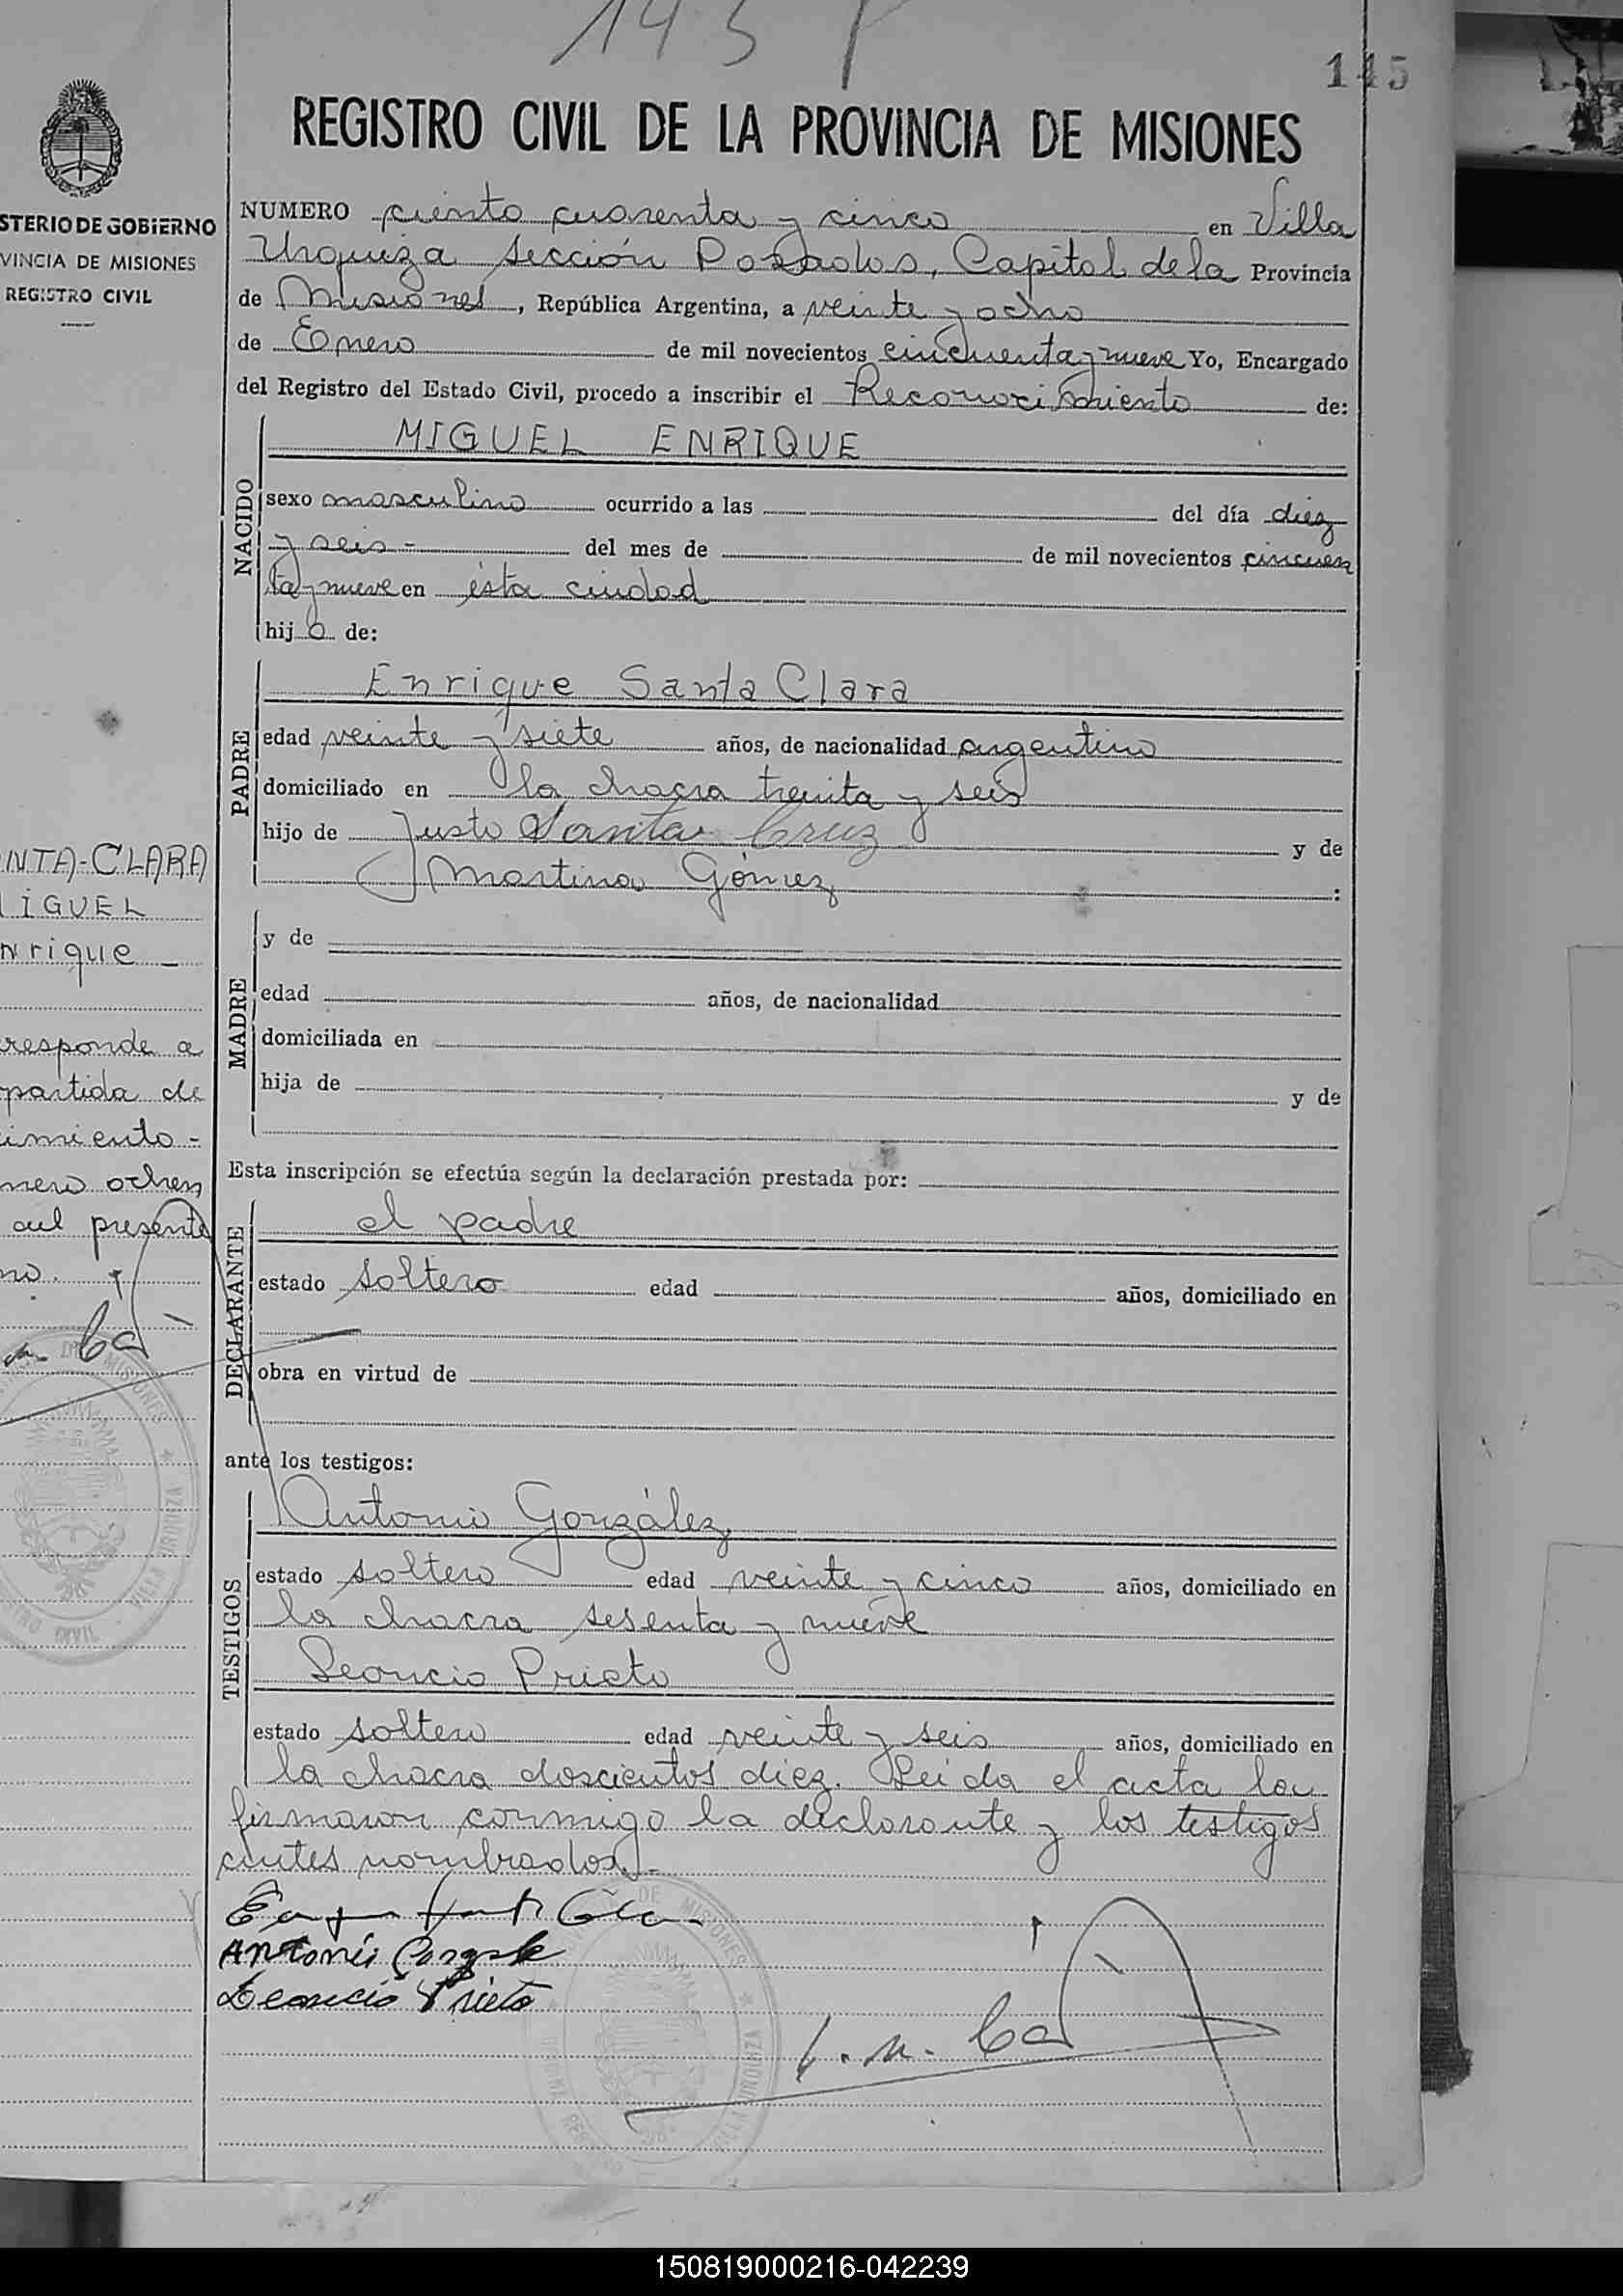 145
145
REGISTRO CIVIL DE LA PROVINCIA DE MISIONES
STERIO DE GOBIERNO
VINCIA DE MISIONES
REGISTRO CIVIL
NUMERO ciento cuarenta y cinco en Villa
Urquiza sección Posadas, Capital de la Provincia
de Misiones, República Argentina, a veinte y ocho
de Enero de mil novecientos cincuenta y nueve Yo, Encargado
del Registro del Estado Civil, procedo a inscribir el Reconocimiento de:
NACIDO
MIGUEL ENRIQUE
sexo masculino ocurrido a las del día diez
y seis - del mes de de mil novecientos cincuen
ta y nueve en ésta ciudad
hij o de:
PADRE
Enrique Santa Clara
edad veinte y siete años, de nacionalidad argentino
domiciliado en la chacra treinta y seis
hijo de Justo Santa Cruz y de
Martina Gómez :
MADRE
y de
edad años, de nacionalidad
domiciliada en
hija de y de
Esta inscripción se efectúa según la declaración prestada por:
DECLARANTE
el padre
estado soltero edad años, domiciliado en
obra en virtud de
ante los testigos:
TESTIGOS
Antonio González
estado soltero edad veinte y cinco años, domiciliado en
la chacra sesenta y nueve
Leoncio Prieto
estado soltero edad veinte y seis años, domiciliado en
la chacra doscientos diez. Leida el acta la
firmaron conmigo la declarante y los testigos
antes nombrados.-
Antonio
Leoncio Prieto
NTA-CLARA
IGUEL
nrique -
responde a
partida de
cimiento -
mero ochen
aul presente
no.
150819000216-042239